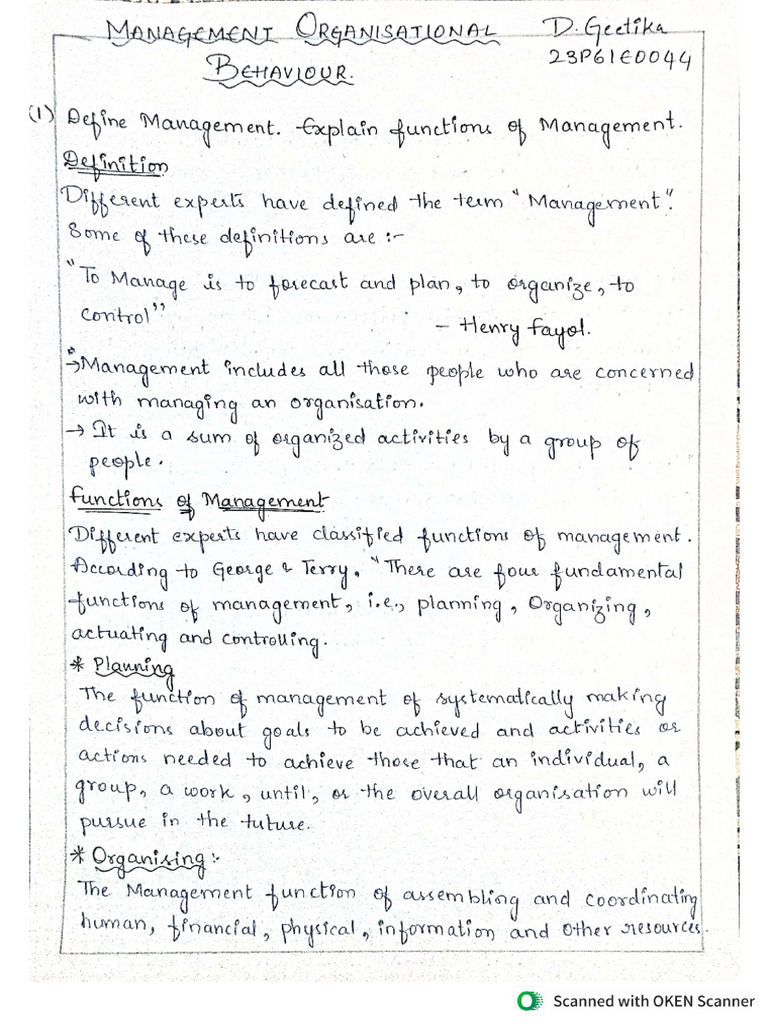 MANAGEMENT ORGANISATIONAL D. Geetika
BEHAVIOUR. 23P61E0044
(1) Define Management. Explain functions of Management.
Definition
Different experts have defined the term "Management".
Some of these definitions are :-
"To Manage is to forecast and plan, to organize, to
control"
- Henry Fayol.
→ Management includes all those people who are concerned
with managing an organisation.
→ It is a sum of organized activities by a group of
people.
Functions of Management
Different experts have classified functions of management.
According to George & Terry, "There are four fundamental
functions of management, i.e., planning, Organizing,
actuating and controlling.
* Planning
The function of management of systematically making
decisions about goals to be achieved and activities or
actions needed to achieve those that an individual, a
group, a work, until, or the overall organisation will
pursue in the tuture.
* Organising :-
The Management function of assembling and coordinating
human, financial, physical, information and other resources.
Scanned with OKEN Scanner